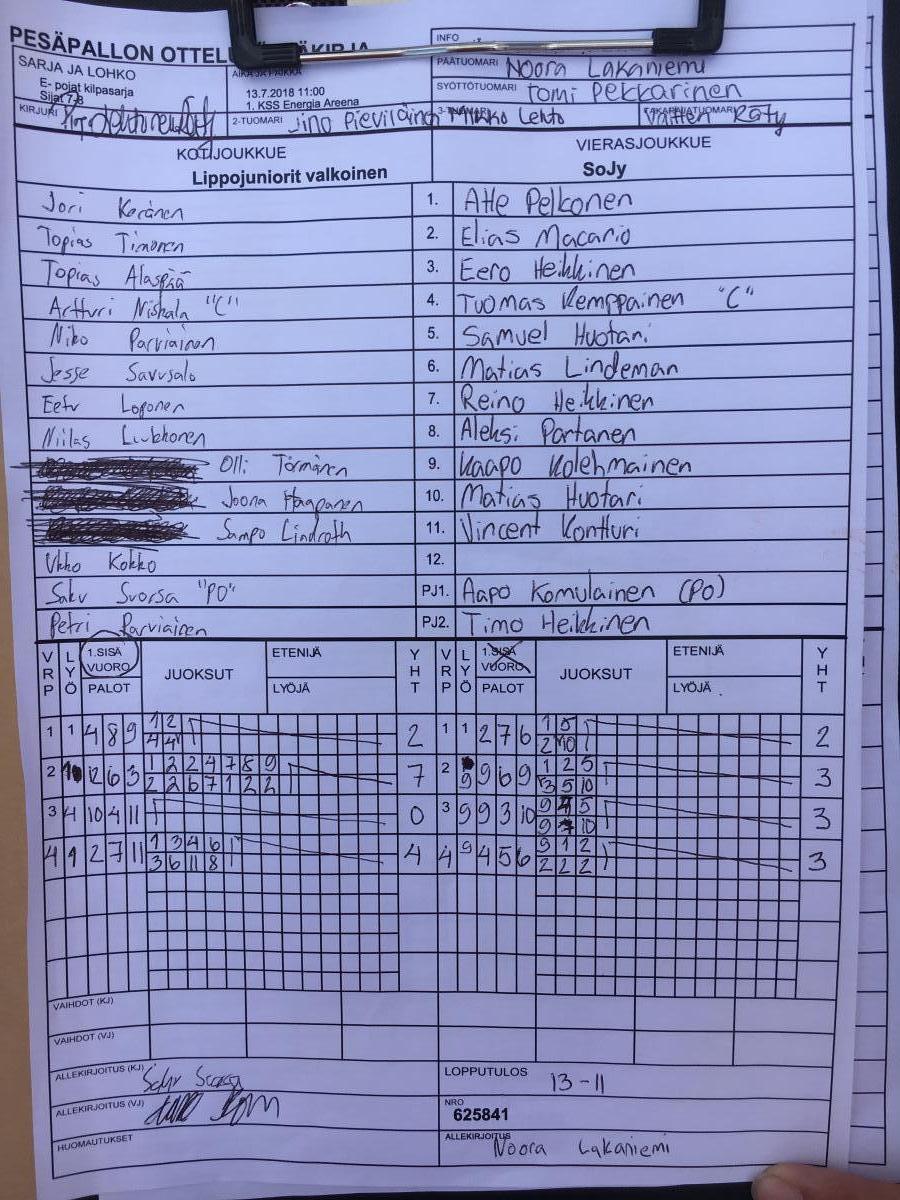 PESÄPALLON
INFO
SARJA JA LOHKO
E- pojat kilpasarja
Sijat 7-8
AIKA JA PAIKKA
13.7.2018 11:00
1. KSS Energia Areena
PÄÄTUOMARI Noora Lakaniemi
SYÖTTÖTUOMARI Tomi Pekkarinen
KIRJURI
2-TUOMARI Jino Pieviläinen
3-TUOMARI Mikko Lehto
TAKARAJATUOMARI Valtteri Räty
KOTIJOUKKUE
Lippojuniorit valkoinen
VIERASJOUKKUE
SoJy
Jori Keränen 1. Atte Pelkonen
Topias Timonen 2. Elias Macario
Topias Alaspää 3. Eero Heikkinen
Artturi Niskala "C" 4. Tuomas Kemppainen "C"
Niko Parviainen 5. Samuel Huotari
Jesse Savusalo 6. Matias Lindeman
Eetu Loponen 7. Reino Heikkinen
Niilas Liukkonen 8. Aleksi Partanen
Olli Törmänen 9. Kaapo Kolehmainen
Joona Haapanen 10. Matias Huotari
Sampo Lindroth 11. Vincent Kontturi
Ukko Kokko 12.
Saku Suorsa "PO" PJ1. Aapo Komulainen (PO)
Petri Parviainen PJ2. Timo Heikkinen
VRP LYÖ 1.SISÄ VUORO PALOT JUOKSUT ETENIJÄ LYÖJÄ YHT VRP LYÖ 1.SISÄ VUORO PALOT JUOKSUT ETENIJÄ LYÖJÄ YHT
1 1 4 8 9 1 2 2 1 1 2 7 6 1 5 2
4 4 2 10
2 12 6 3 1 2 2 4 7 8 9 7 2 9 9 6 9 1 2 5 3
2 2 6 7 1 2 2 3 5 10
3 4 10 4 11 0 3 9 9 3 10 9 4 5 3
9 7 10
4 1 2 7 11 1 3 4 6 4 4 9 4 5 6 9 1 2 3
3 6 11 8 2 2 2
VAIHDOT (KJ)
VAIHDOT (VJ)
ALLEKIRJOITUS (KJ)
LOPPUTULOS 13-11
ALLEKIRJOITUS (VJ)
NRO
625841
HUOMAUTUKSET
ALLEKIRJOITUS Noora Lakaniemi